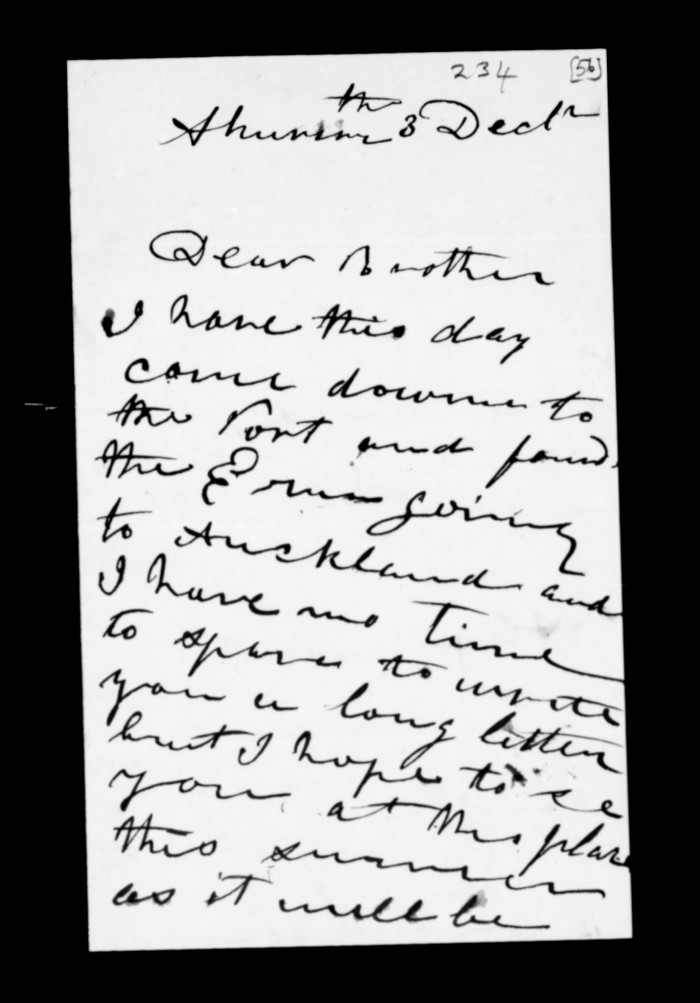 234 [56]
3th Decbr
Dear Brother
I have this day
come downe to
the Port and found
the Erin going
to Auckland and
I have no time
to spare to write
you a long letter
but I hope to se
you at this place
this summer
as it will be